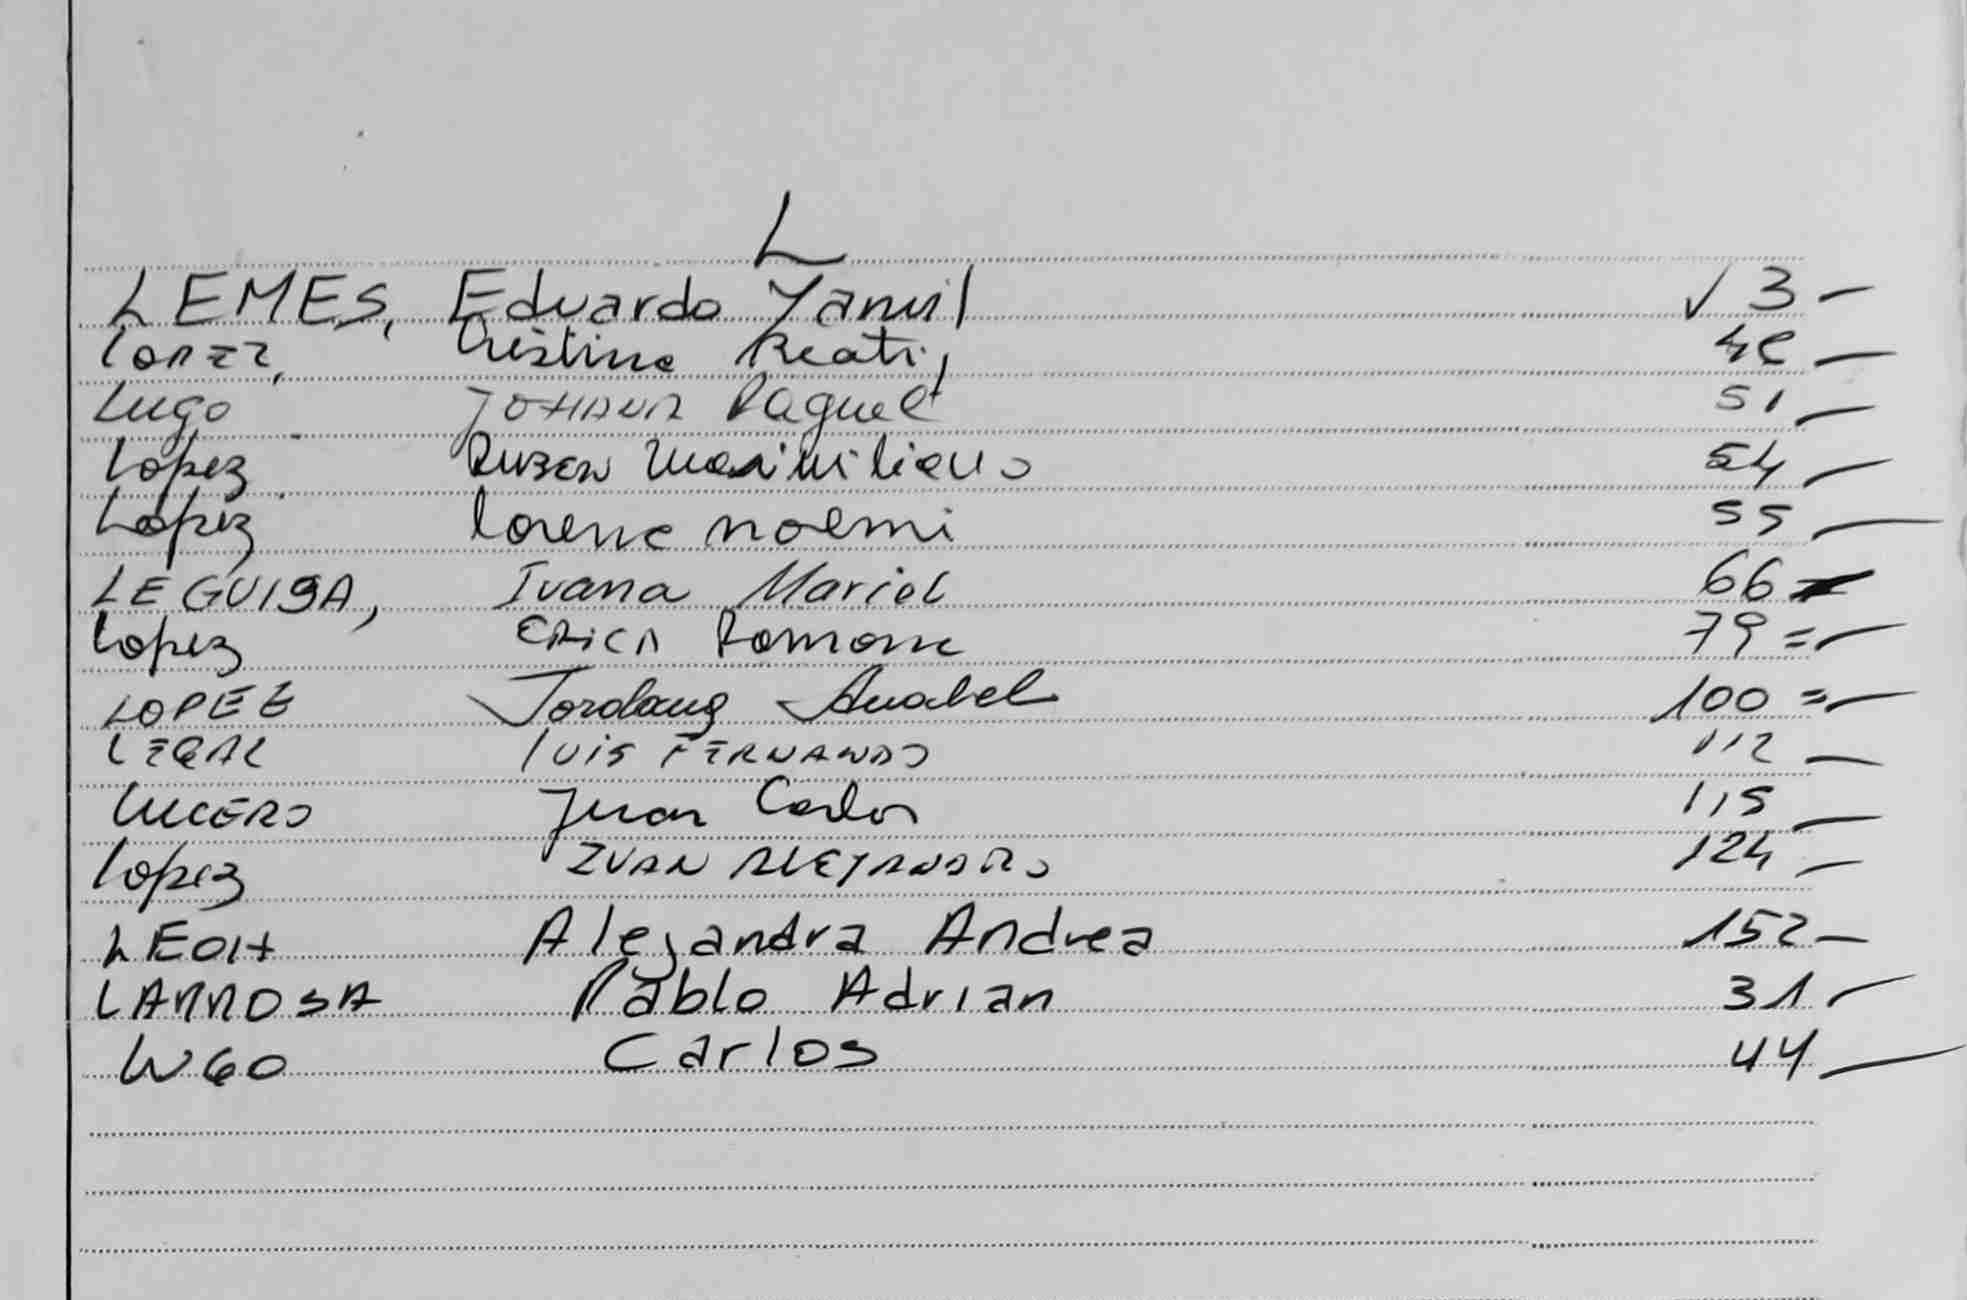 L
LEMES, Eduardo Yamil √ 3 —
LOPEZ, Cristina Beatri 
Lugo Johana Raquel 51 —
Lopez Ruben Maximiliano 54 —
Lopez Lorena noemi 55 —
LEGUISA, Ivana Mariel 66 —
Lopez ERICA Romona 79 = —
LOPEZ Anabel 100 = —
LEGAL LUIS FERNANDO 112 —
LUCERO Juan Carlos 115 —
Lopez IVAN ALEJANDRO 124 —
LEON Alejandra Andrea 152 —
LARROSA Pablo Adrian 31 —
LUGO Carlos 44 —